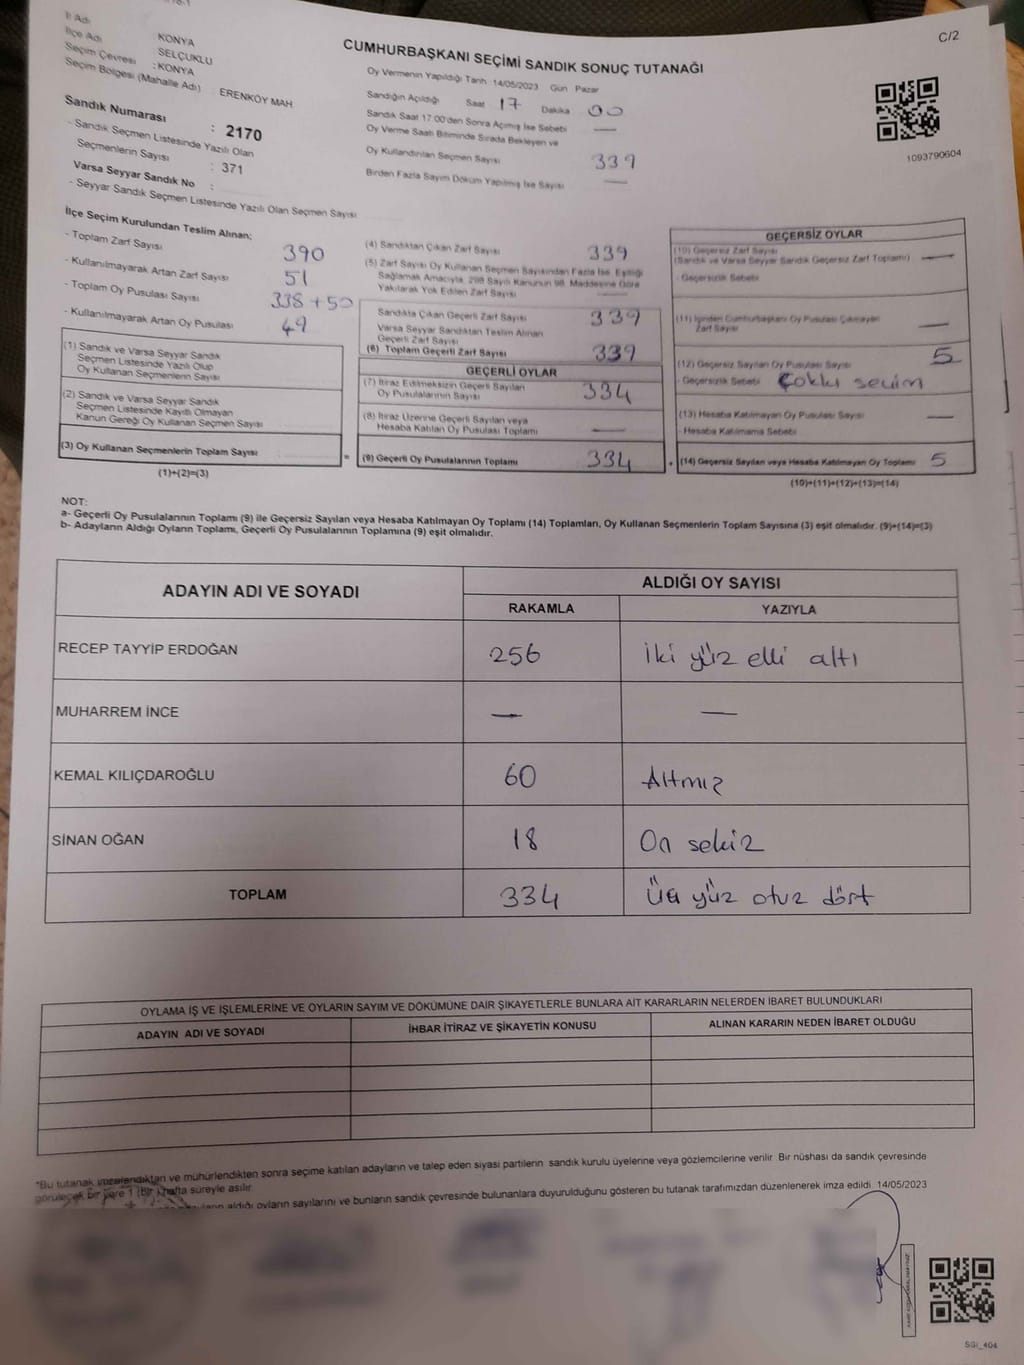 C/2
İl Adı
KONYA
İlçe Adı
SELÇUKLU
Seçim Çevresi
:KONYA
Seçim Bölgesi (Mahalle Adı)
: ERENKÖY MAH
Sandık Numarası
: 2170
- Sandık Seçmen Listesinde Yazılı Olan
Seçmenlerin Sayısı
: 371
Varsa Seyyar Sandık No
:
- Seyyar Sandık Seçmen Listesinde Yazılı Olan Seçmen Sayısı
CUMHURBAŞKANI SEÇİMİ SANDIK SONUÇ TUTANAĞI
Oy Vermenin Yapıldığı Tarih 14/05/2023 Gün Pazar
Sandığın Açıldığı Saat 17 Dakika 00
Sandık Saat 17.00'den Sonra Açılmış İse Sebebi —
Oy Verme Saati Bitiminde Sırada Bekleyen ve
Oy Kullandırılan Seçmen Sayısı 339
Birden Fazla Sayım Döküm Yapılmış İse Sayısı —
1093790604
İlçe Seçim Kurulundan Teslim Alınan;
- Toplam Zarf Sayısı 390
- Kullanılmayarak Artan Zarf Sayısı 51
- Toplam Oy Pusulası Sayısı 338+50
- Kullanılmayarak Artan Oy Pusulası 49
(1) Sandık ve Varsa Seyyar Sandık
Seçmen Listesinde Yazılı Olup
Oy Kullanan Seçmenlerin Sayısı
(2) Sandık ve Varsa Seyyar Sandık
Seçmen Listesinde Kayıtlı Olmayan
Kanun Gereği Oy Kullanan Seçmen Sayısı
(3) Oy Kullanan Seçmenlerin Toplam Sayısı
(1)+(2)=(3)
(4) Sandıktan Çıkan Zarf Sayısı 339
(5) Zarf Sayısı Oy Kullanan Seçmen Sayısından Fazla İse, Eşitliği
Sağlamak Amacıyla, 298 Sayılı Kanunun 98. Maddesine Göre
Yakılarak Yok Edilen Zarf Sayısı —
Sandıkta Çıkan Geçerli Zarf Sayısı 339
Varsa Seyyar Sandıktan Teslim Alınan
Geçerli Zarf Sayısı
(6) Toplam Geçerli Zarf Sayısı 339
GEÇERLİ OYLAR
(7) İtiraz Edilmeksizin Geçerli Sayılan
Oy Pusulalarının Sayısı 334
(8) İtiraz Üzerine Geçerli Sayılan veya
Hesaba Katılan Oy Pusulası Toplamı —
= (9) Geçerli Oy Pusulalarının Toplamı 334
GEÇERSİZ OYLAR
(10) Geçersiz Zarf Sayısı
(Sandık ve Varsa Seyyar Sandık Geçersiz Zarf Toplamı) —
- Geçersizlik Sebebi
(11) İçinden Cumhurbaşkanı Oy Pusulası Çıkmayan
Zarf Sayısı —
(12) Geçersiz Sayılan Oy Pusulası Sayısı 5
- Geçersizlik Sebebi Çoklu seçim
(13) Hesaba Katılmayan Oy Pusulası Sayısı —
- Hesaba Katılmama Sebebi
+ (14) Geçersiz Sayılan veya Hesaba Katılmayan Oy Toplamı 5
(10)+(11)+(12)+(13)=(14)
NOT:
a- Geçerli Oy Pusulalarının Toplamı (9) ile Geçersiz Sayılan veya Hesaba Katılmayan Oy Toplamı (14) Toplamları, Oy Kullanan Seçmenlerin Toplam Sayısına (3) eşit olmalıdır. (9)+(14)=(3)
b- Adayların Aldığı Oyların Toplamı, Geçerli Oy Pusulalarının Toplamına (9) eşit olmalıdır.
ADAYIN ADI VE SOYADI
ALDIĞI OY SAYISI
RAKAMLA YAZIYLA
RECEP TAYYİP ERDOĞAN 256 iki yüz elli altı
MUHARREM İNCE — —
KEMAL KILIÇDAROĞLU 60 Altmız
SİNAN OĞAN 18 On sekiz
TOPLAM 334 Üç yüz otuz dört
OYLAMA İŞ VE İŞLEMLERİNE VE OYLARIN SAYIM VE DÖKÜMÜNE DAİR ŞİKAYETLERLE BUNLARA AİT KARARLARIN NELERDEN İBARET BULUNDUKLARI
ADAYIN ADI VE SOYADI İHBAR İTİRAZ VE ŞİKAYETİN KONUSU ALINAN KARARIN NEDEN İBARET OLDUĞU
*Bu tutanak imzalandıktan ve mühürlendikten sonra seçime katılan adayların ve talep eden siyasi partilerin sandık kurulu üyelerine veya gözlemcilerine verilir. Bir nüshası da sandık çevresinde
görülecek bir yere 1 (bir) hafta süreyle asılır.
aldığı oyların sayılarını ve bunların sandık çevresinde bulunanlara duyurulduğunu gösteren bu tutanak tarafımızdan düzenlenerek imza edildi. 14/05/2023
SGI_404